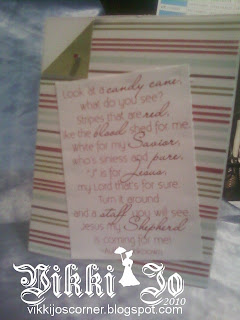 Look at a candy cane,
what do you see?
Stripes that are red,
like the blood shed for me.
White for my Savior,
who's sinless and pure.
"J" is for Jesus,
my Lord that's for sure.
Turn it around
and a staff you will see.
Jesus my Shepherd
is coming for me!
Vikki Jo
2010
vikkijoscorner.blogspot.com